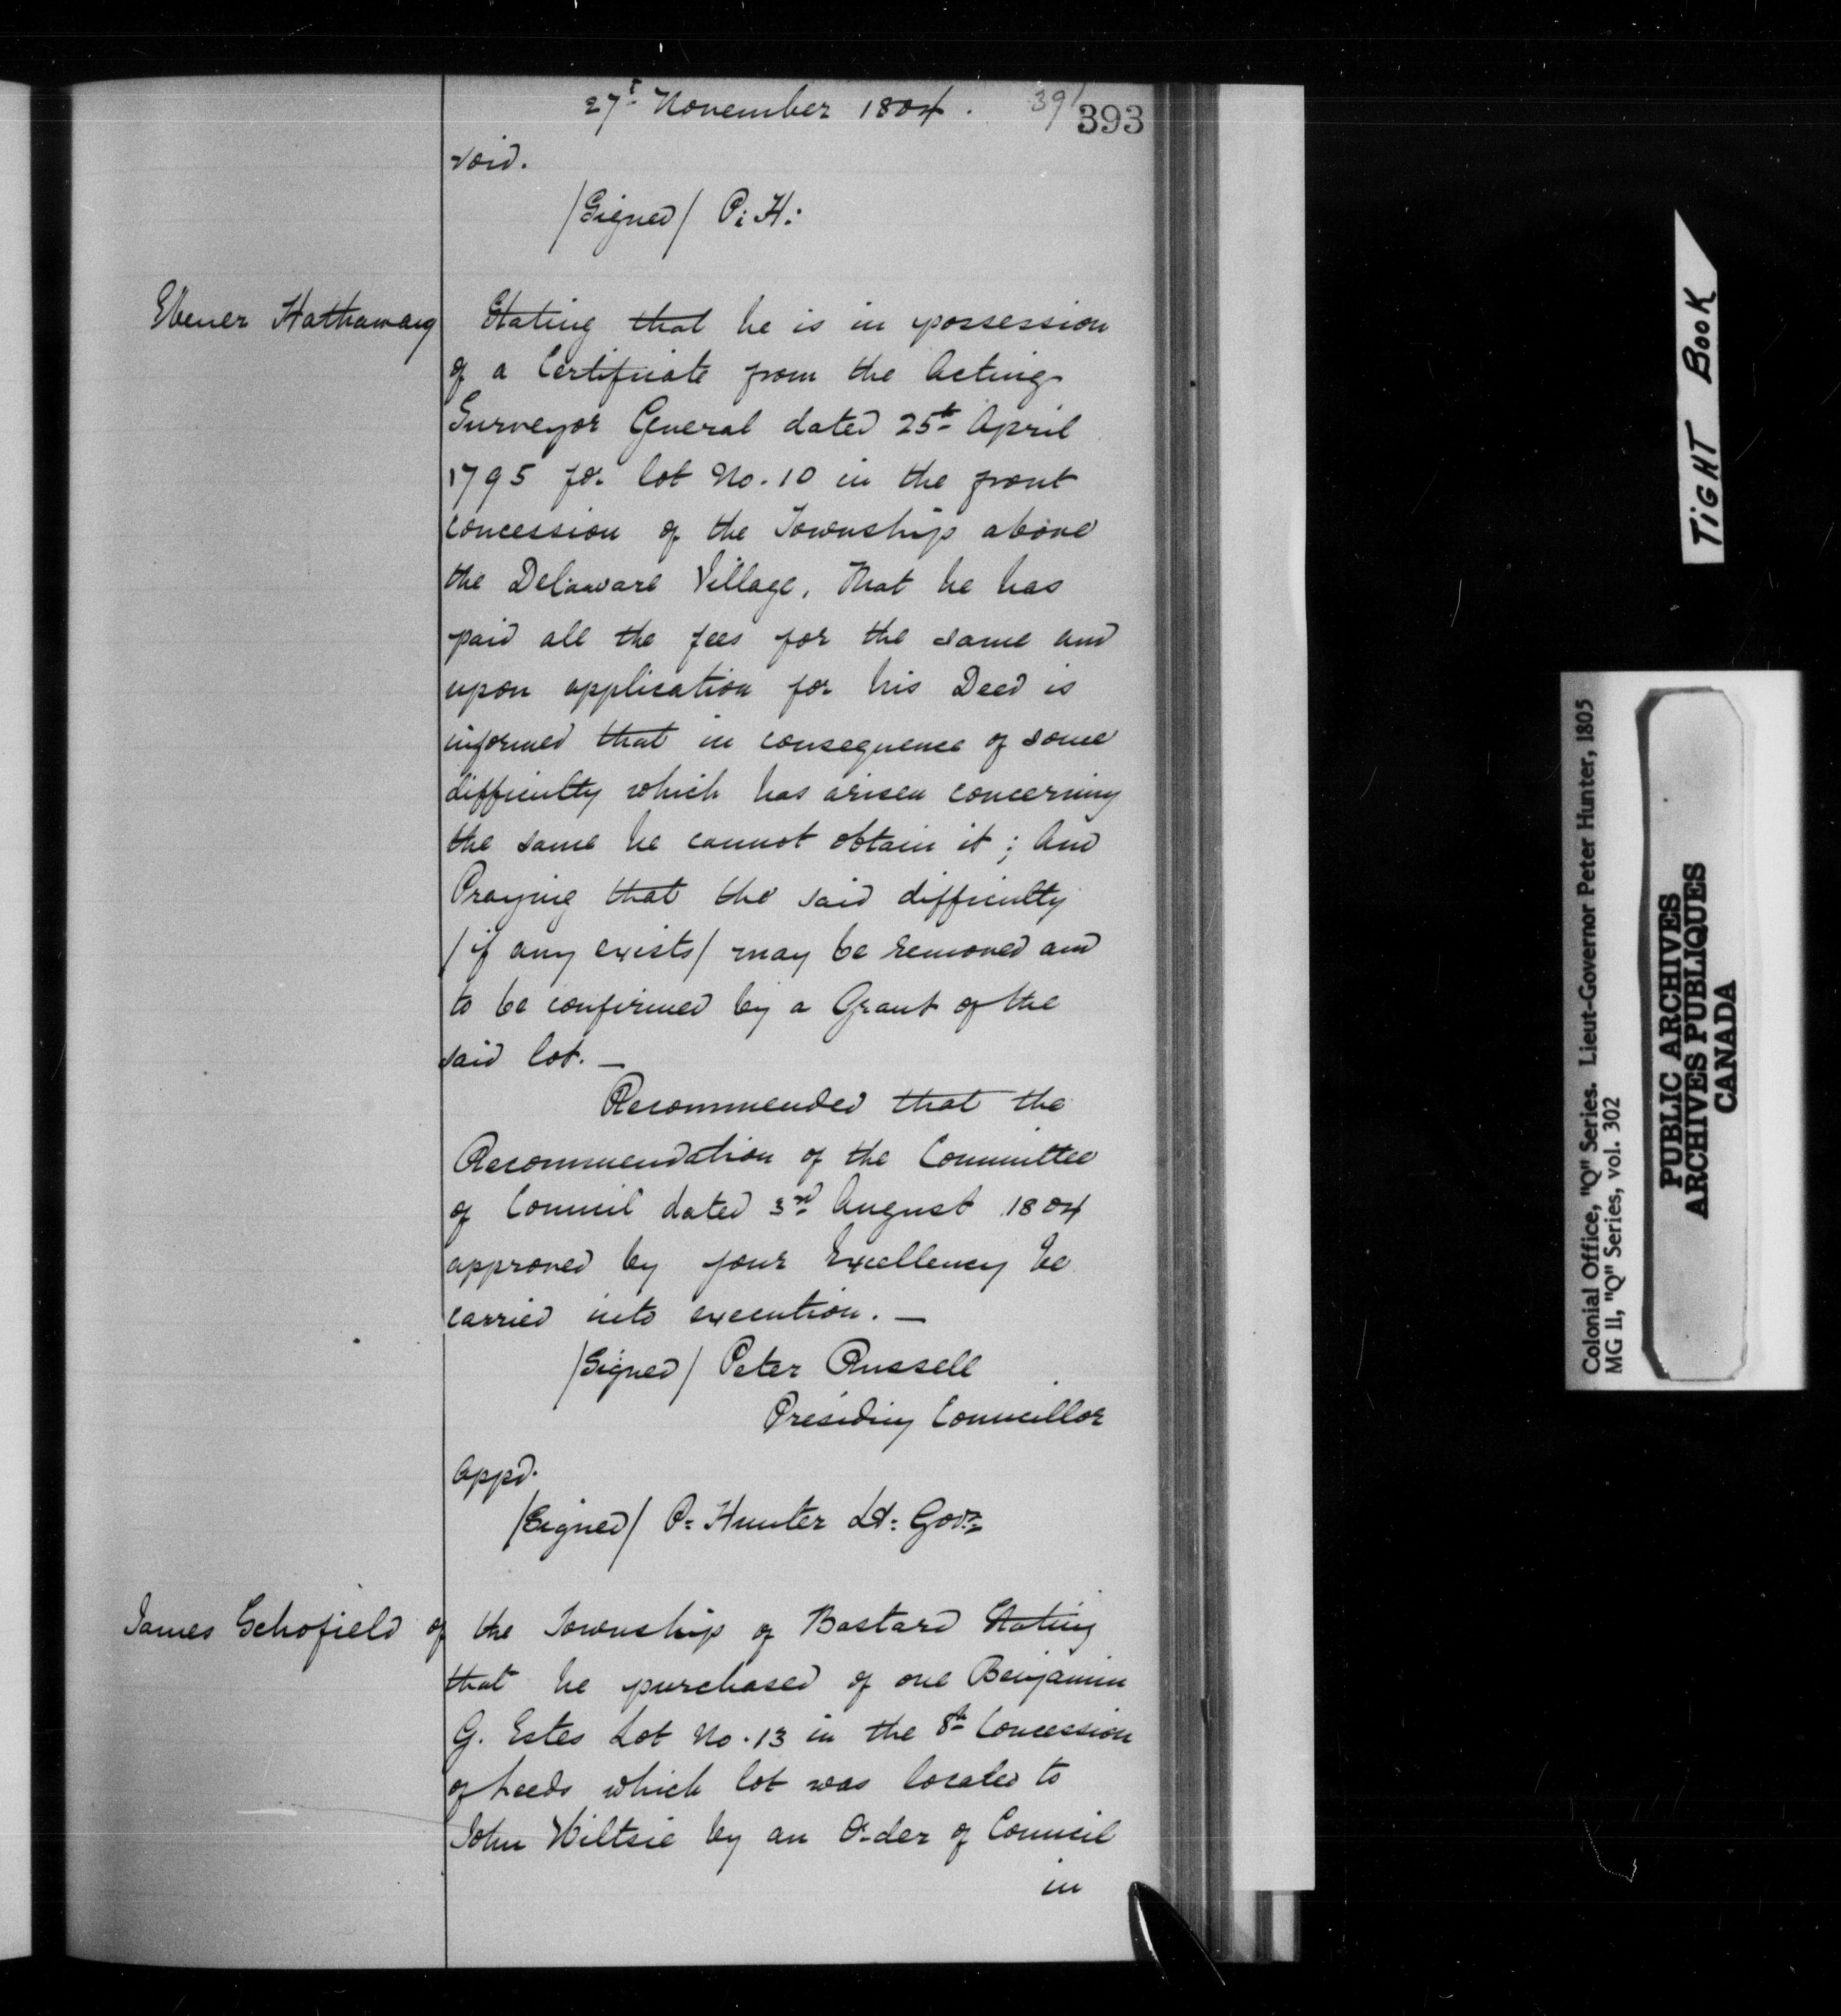 27t November 1804.
391
393
void.
/Signed/ P: H:
Ebener Hathaway Stating that he is in possession
of a Certificate from the Acting
Surveyor General dated 25th April
1795 for lot No. 10 in the front
concession of the Township above
the Delaware Village, That he has
paid all the fees for the same and
upon application for his Deed is
informed that in consequence of some
difficulty which has arisen concerning
the same he cannot obtain it; And
Praying that the said difficulty
/if any exists/ may be removed and
to be confirmed by a Grant of the
said lot. —
Recommended that the
Recommendation of the Committee
of Council dated 3rd August 1804
approved by your Excellency be
carried into execution. —
/Signed/ Peter Russell
Presiding Councillor
Appd.
/Signed/ P: Hunter Lt: Govr:
James Schofield of the Township of Bastard Stating
that he purchased of one Benjamin
G. Estes Lot No. 13 in the 8th Concession
of Leeds which lot was located to
John Wiltsie by an Order of Council
in
TIGHT BOOK
Colonial Office, "Q" Series. Lieut-Governor Peter Hunter, 1805
MG 11, "Q" Series, vol. 302
PUBLIC ARCHIVES
ARCHIVES PUBLIQUES
CANADA